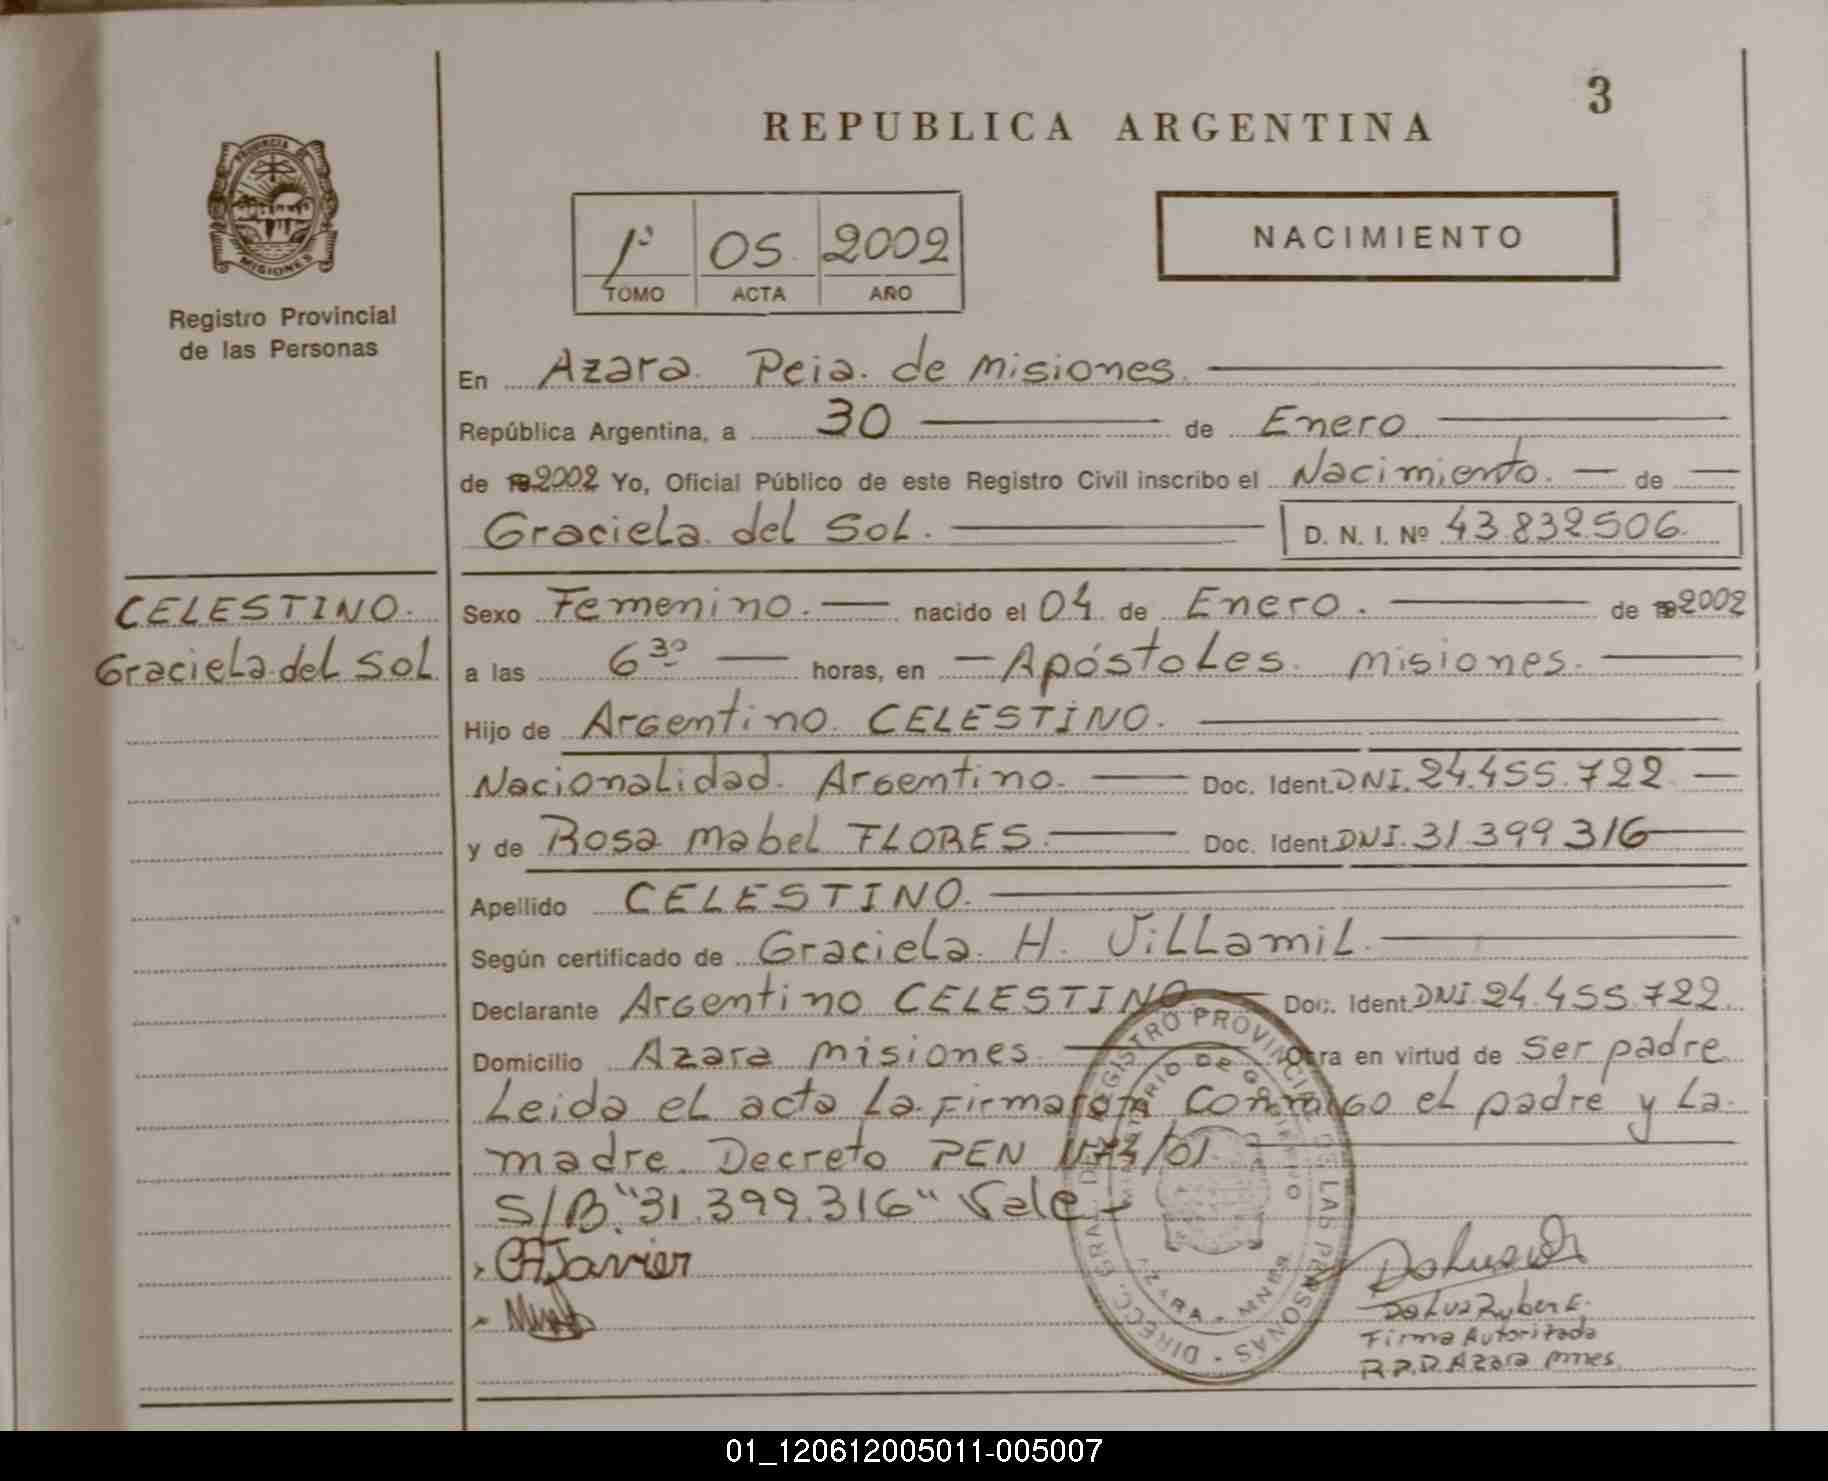 3
REPUBLICA ARGENTINA
PROVINCIA DE
MISIONES
1º 05 2002
TOMO ACTA AÑO
NACIMIENTO
Registro Provincial
de las Personas
En Azara. Pcia. de Misiones.
República Argentina, a 30 de Enero
de 2002 Yo, Oficial Público de este Registro Civil inscribo el Nacimiento. de
Graciela del Sol. D. N. I. Nº 43.832.506.
CELESTINO.
Graciela del Sol
Sexo Femenino. nacido el 04 de Enero. de 2002
a las 6 30 horas, en Apóstoles. Misiones.
Hijo de Argentino CELESTINO.
Nacionalidad. Argentino. Doc. Ident. DNI. 24.455.722
y de Rosa Mabel FLORES. Doc. Ident. DNI. 31.399 316
Apellido CELESTINO.
Según certificado de Graciela H. Villamil.
Declarante Argentino CELESTINO Doc. Ident. DNI. 24.455.722.
Domicilio Azara Misiones. Obra en virtud de Ser padre
Leida el acta la firmaron conmigo el padre y la
madre. Decreto PEN /01
S/B. "31.399.316" Vale
DIRECC. GRAL. DEL REGISTRO PROVINCIAL DE LAS PERSONAS
MINISTERIO DE GOBIERNO
AZARA - MNES
Da Luz Ruben E.
Firma Autorizada
R.P.D. Azara Mnes.
01_120612005011-005007